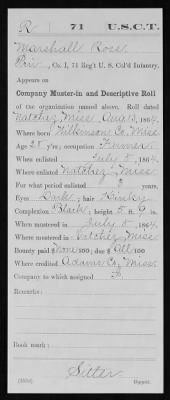 R 71 U.S.C.T.
Marshall Ross
Priv, Co. I, 71 Reg't U. S. Col'd Infantry.
Appears on
Company Muster-in and Descriptive Roll
of the organization named above. Roll dated
Natchez Miss Aug 3, 1864.
Where born Wilkinson Co. Miss
Age 28 y'rs; occupation Farmer
When enlisted July 5, 1864.
Where enlisted Natchez, Miss
For what period enlisted 3 years.
Eyes Dark; hair Kinky
Complexion Black; height 5 ft. 9 in.
When mustered in July 5, 1864.
Where mustered in Natchez, Miss
Bounty paid $ None 100; due $ All 100
Where credited Adams Co, Miss.
Company to which assigned
Remarks:
Book mark:
Sitter
Copyist.